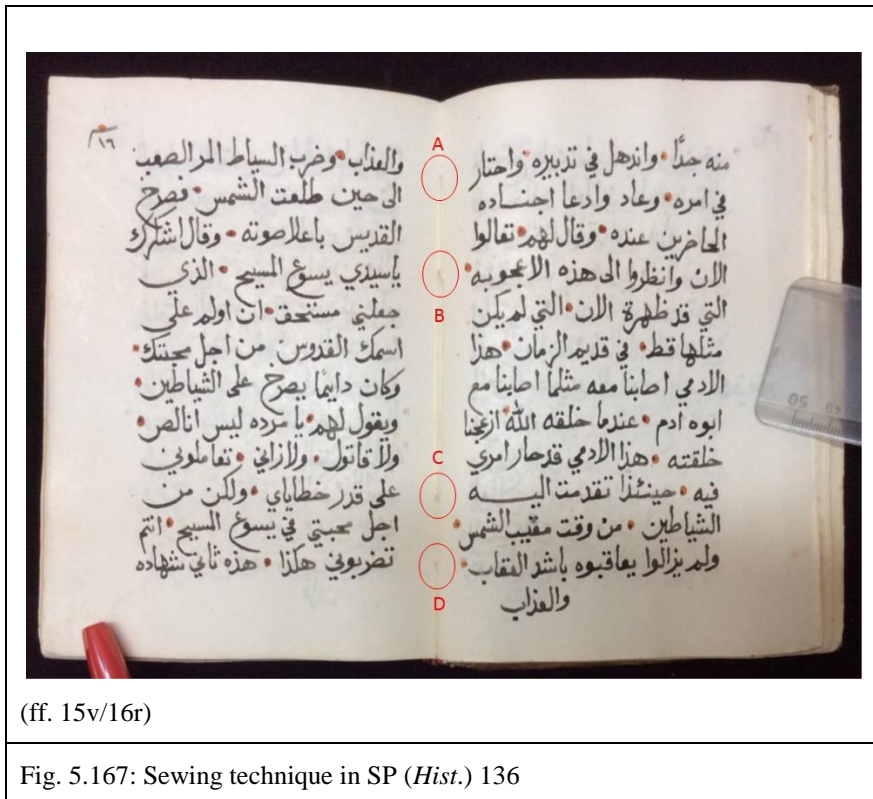 منه جدًّا • واندهل في تدبيره • واحتار
في امره • وعاد وادعا اجنــاده
الحاضرين عنده • وقال لهم • تعالوا
الان وانظروا الى هذه الاعجوبه •
التي قد ظهرة الان • التي لم يكن
مثلها قط • في قديم الزمان • هذا
الادمي اصابنا معه مثلما اصابنا مع
ابوه ادم • عندما خلقه الله ازعجنا
خلقته • هذا الادمي قد حار امري
فيه • حينئذا تقدمت اليـــه
الشياطين • من وقت مغيب الشمس •
ولم يزالوا يعاقبوه باشد العقاب •
والعذاب
١٦
والعذاب • وضرب السياط المر الصعب
الى حين طلعت الشمس • فصرخ
القديس باعلا صوته • وقال اشكرك
ياسيدي يسوع المسيح • الذي
جعلني مستحق • ان اولم علي
اسمك القدوس من اجل محبتك •
وكان دايمًا يصرخ على الشياطين •
ويقول لهم • يا مرده ليس انا لص •
ولا قاتول • ولا زاني • تعاملوني
على قدر خطاياي • ولكن من
اجل محبتي في يسوع المسيح • انتم
تضربوني هكذا • هذه ثاني شهاده
A
B
C
D
50 49
(ff. 15v/16r)
Fig. 5.167: Sewing technique in SP (Hist.) 136